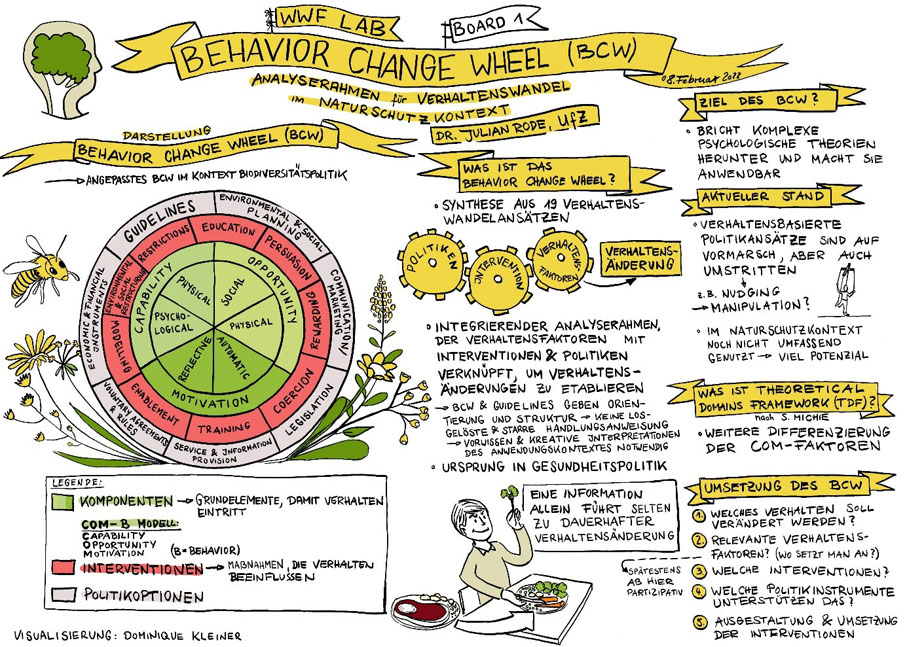 WWF LAB
BOARD 1
BEHAVIOR CHANGE WHEEL (BCW)
08. Februar 2022
ANALYSERAHMEN für VERHALTENSWANDEL
IM NATURSCHUTZKONTEXT
DR. JULIAN RODE, UfZ
DARSTELLUNG
BEHAVIOR CHANGE WHEEL (BCW)
→ ANGEPASSTES BCW IM KONTEXT BIODIVERSITÄTSPOLITIK
GUIDELINES
ENVIRONMENTAL & SOCIAL
PLANNING
COMMUNICATION/
MARKETING
LEGISLATION
SERVICE & INFORMATION
PROVISION
VOLUNTARY AGREEMENTS
& RULES
ECONOMIC & FINANCIAL
INSTRUMENTS
RESTRICTIONS
EDUCATION
PERSUASION
REWARDING
COERCION
TRAINING
ENABLEMENT
MODELLING
ENVIRONMENTAL
& SOCIAL
RESTRUCTURING
CAPABILITY
OPPORTUNITY
MOTIVATION
PHYSICAL
SOCIAL
PSYCHO-
LOGICAL
PHYSICAL
REFLECTIVE
AUTOMATIC
LEGENDE:
KOMPONENTEN → GRUNDELEMENTE, DAMIT VERHALTEN
EINTRITT
COM-B MODELL:
CAPABILITY
OPPORTUNITY
MOTIVATION (B=BEHAVIOR)
INTERVENTIONEN → MAßNAHMEN, DIE VERHALTEN
BEEINFLUSSEN
POLITIKOPTIONEN
VISUALISIERUNG: DOMINIQUE KLEINER
WAS IST DAS
BEHAVIOR CHANGE WHEEL?
• SYNTHESE AUS 19 VERHALTENS-
WANDELANSÄTZEN
POLITIKEN
INTERVENTION
VERHALTENS-
FAKTOREN
VERHALTENS-
ÄNDERUNG
• INTEGRIERENDER ANALYSERAHMEN,
DER VERHALTENSFAKTOREN MIT
INTERVENTIONEN & POLITIKEN
VERKNÜPFT, UM VERHALTENS-
ÄNDERUNGEN ZU ETABLIEREN
→ BCW & GUIDELINES GEBEN ORIEN-
TIERUNG UND STRUKTUR → KEINE LOS-
GELÖSTE & STARRE HANDLUNGSANWEISUNG
→ VORWISSEN & KREATIVE INTERPRETATIONEN
DES ANWENDUNGSKONTEXTES NOTWENDIG
• URSPRUNG IN GESUNDHEITSPOLITIK
EINE INFORMATION
ALLEIN FÜHRT SELTEN
ZU DAUERHAFTER
VERHALTENSÄNDERUNG
ZIEL DES BCW?
• BRICHT KOMPLEXE
PSYCHOLOGISCHE THEORIEN
HERUNTER UND MACHT SIE
ANWENDBAR
AKTUELLER STAND
• VERHALTENSBASIERTE
POLITIKANSÄTZE SIND AUF
VORMARSCH, ABER AUCH
UMSTRITTEN
z.B. NUDGING
→ MANIPULATION?
• IM NATURSCHUTZKONTEXT
NOCH NICHT UMFASSEND
GENUTZT → VIEL POTENZIAL
WAS IST THEORETICAL
DOMAINS FRAMEWORK (TDF)?
nach S. MICHIE
• WEITERE DIFFERENZIERUNG
DER COM-FAKTOREN
UMSETZUNG DES BCW
1. WELCHES VERHALTEN SOLL
VERÄNDERT WERDEN?
2. RELEVANTE VERHALTENS-
FAKTOREN? (WO SETZT MAN AN?)
SPÄTESTENS
AB HIER
PARTIZIPATIV
3. WELCHE INTERVENTIONEN?
4. WELCHE POLITIKINSTRUMENTE
UNTERSTÜTZEN DAS?
5. AUSGESTALTUNG & UMSETZUNG
DER INTERVENTIONEN